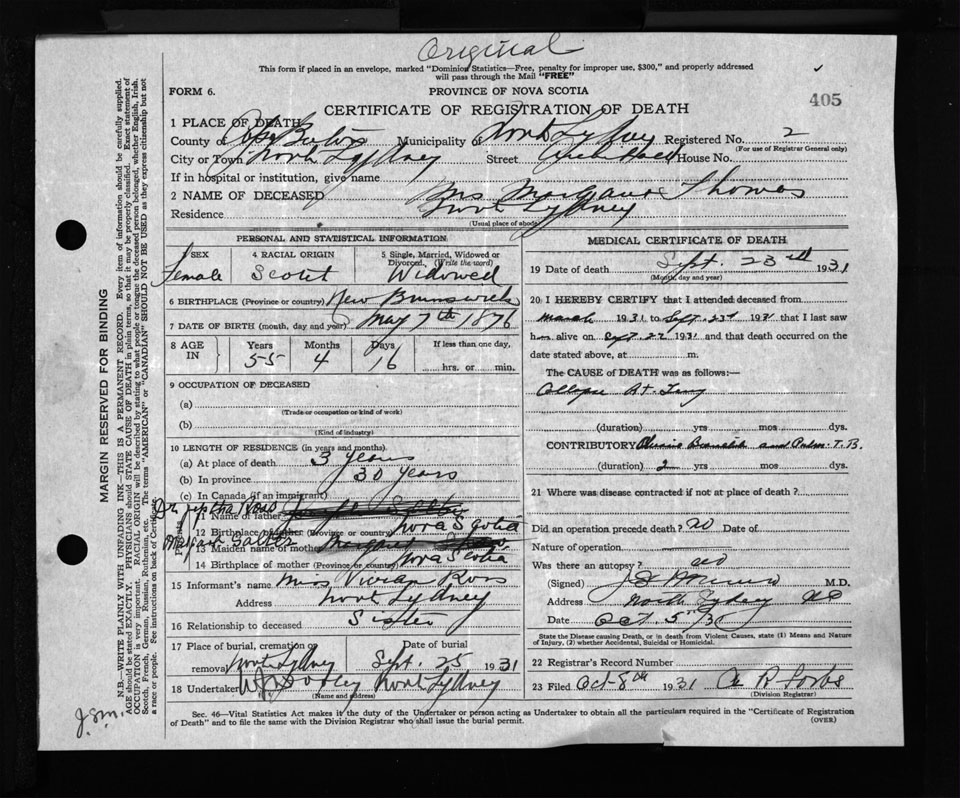 Original
This form if placed in an envelope, marked "Dominion Statistics—Free, penalty for improper use, $300," and properly addressed
will pass through the Mail "FREE"
FORM 6. PROVINCE OF NOVA SCOTIA 405
CERTIFICATE OF REGISTRATION OF DEATH
1 PLACE OF DEATH
County of Cape Breton Municipality of North Sydney Registered No. 2
(For use of Registrar General only)
City or Town North Sydney Street House No.
If in hospital or institution, give name
2 NAME OF DECEASED Mrs Margaret Thomas
Residence North Sydney
(Usual place of abode)
PERSONAL AND STATISTICAL INFORMATION
3 SEX 4 RACIAL ORIGIN 5 Single, Married, Widowed or Divorced. (Write the word)
Female Scotch Widowed
6 BIRTHPLACE (Province or country) New Brunswick
7 DATE OF BIRTH (month, day and year) May 7th 1876
8 AGE IN Years Months Days If less than one day,
55 4 16 hrs. or min.
9 OCCUPATION OF DECEASED
(a)
(Trade or occupation or kind of work)
(b)
(Kind of industry)
10 LENGTH OF RESIDENCE (in years and months).
(a) At place of death 3 years
(b) In province 30 years
(c) In Canada (if an immigrant)
Ross
11 Name of father
12 Birthplace of father (Province or country) Nova Scotia
Margaret Salter
13 Maiden name of mother Margaret
14 Birthplace of mother (Province or country) Nova Scotia
Parents
15 Informant's name Mrs Vivian Ross
Address North Sydney
16 Relationship to deceased Sister
17 Place of burial, cremation or removal Date of burial
North Sydney Sept. 25 1931
18 Undertaker Dooley North Sydney
(Name and address)
MEDICAL CERTIFICATE OF DEATH
19 Date of death Sept. 23rd 1931
(Month, day and year)
20 I HEREBY CERTIFY that I attended deceased from
March 1931 to Sept. 23rd 1931 that I last saw
h alive on Sept. 22 1931 and that death occurred on the
date stated above, at m.
The CAUSE of DEATH was as follows:—
Collapse Rt. Lung
(duration) yrs mos dys.
CONTRIBUTORY Chronic Bronchitis and Pulm. T.B.
(duration) 2 yrs mos dys.
21 Where was disease contracted if not at place of death?
Did an operation precede death? no Date of
Nature of operation
Was there an autopsy? no
(Signed) M.D.
Address North Sydney NS
Date Oct. 5 31
State the Disease causing Death, or in death from Violent Causes, state (1) Means and Nature
of Injury, (2) whether Accidental, Suicidal or Homicidal.
22 Registrar's Record Number
23 Filed Oct 8th 1931 R Forbes
(Division Registrar)
Sec. 46—Vital Statistics Act makes it the duty of the Undertaker or person acting as Undertaker to obtain all the particulars required in the "Certificate of Registration
of Death" and to file the same with the Division Registrar who shall issue the burial permit. (OVER)
MARGIN RESERVED FOR BINDING
N.B.—WRITE PLAINLY WITH UNFADING INK—THIS IS A PERMANENT RECORD. Every item of information should be carefully supplied.
AGE should be stated EXACTLY. PHYSICIANS should STATE CAUSE OF DEATH in plain terms, so that it may be properly classified. Exact statement of
OCCUPATION is very important. RACIAL ORIGIN will be described by stating to what people or tongue the deceased person belonged, whether English, Irish,
Scotch, French, German, Russian, Ruthenian, etc. The terms "AMERICAN" or "CANADIAN" SHOULD NOT BE USED as they express citizenship but not
a race or people. See instructions on back of Certificate.